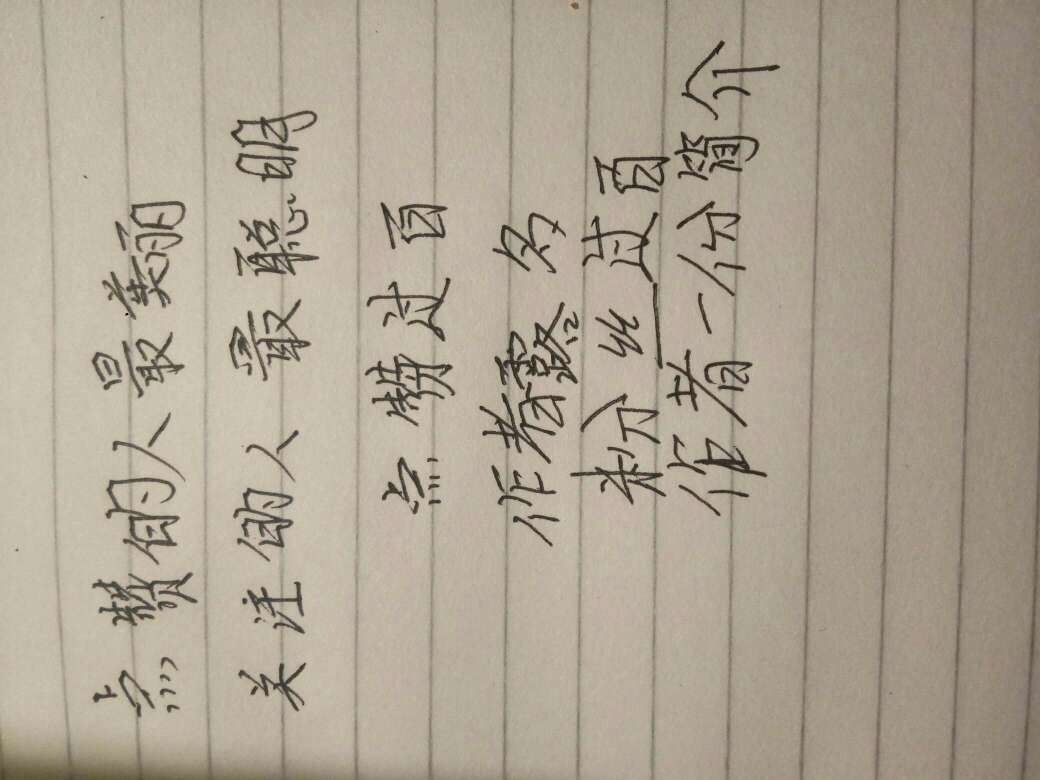 点赞的人最美丽
关注的人最聪明
点赞过百
作者露名
粉丝过百
作者一份简介